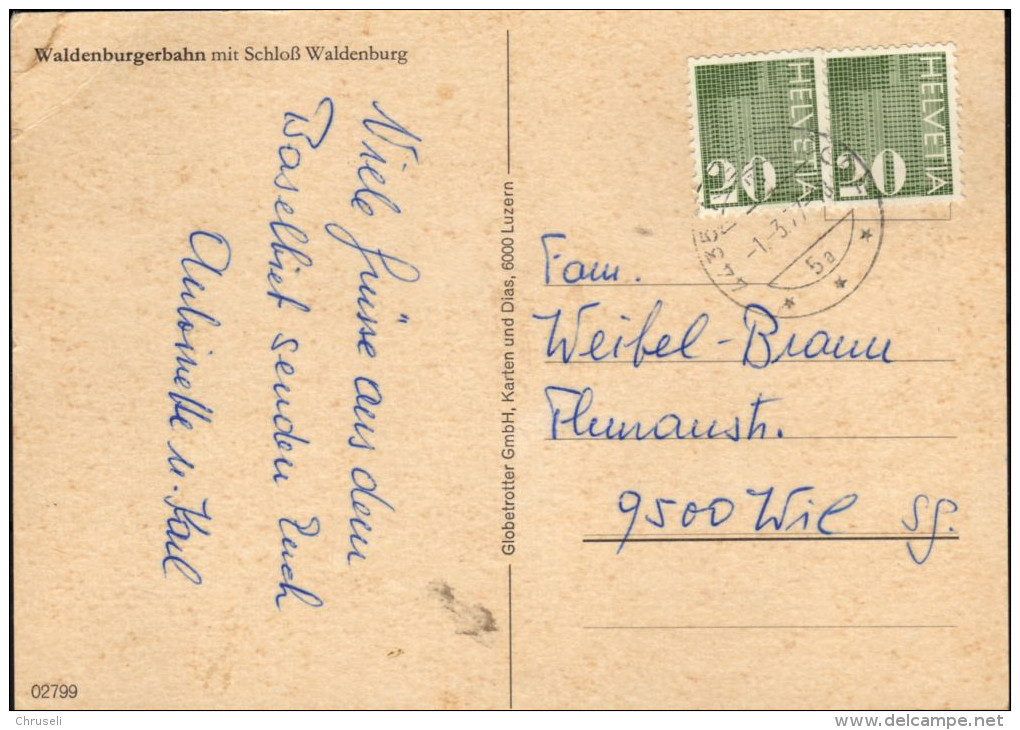 Waldenburgerbahn mit Schloß Waldenburg
Viele Grüsse aus dem
Baselbiet senden Euch
Antoinette u. Karl
Globetrotter GmbH, Karten und Dias, 6000 Luzern
HELVETIA
20
HELVETIA
20
-1.-3.7
5a
Fam.
Weibel-Braun
Thuraustr.
9500 Wil SG.
02799
Chruseli
www.delcampe.net